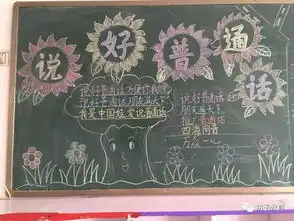 说好普通话
说好普通话 方便你我他
说好普通话 朋友遍天下
我是中国娃 爱说普通话
说好普通话
朋友遍天下
推广普通话
四海同音
万众一心